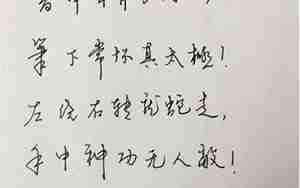 笔下常怀真太極!
左绕右转龙蛇走,
手中神功无人敌!